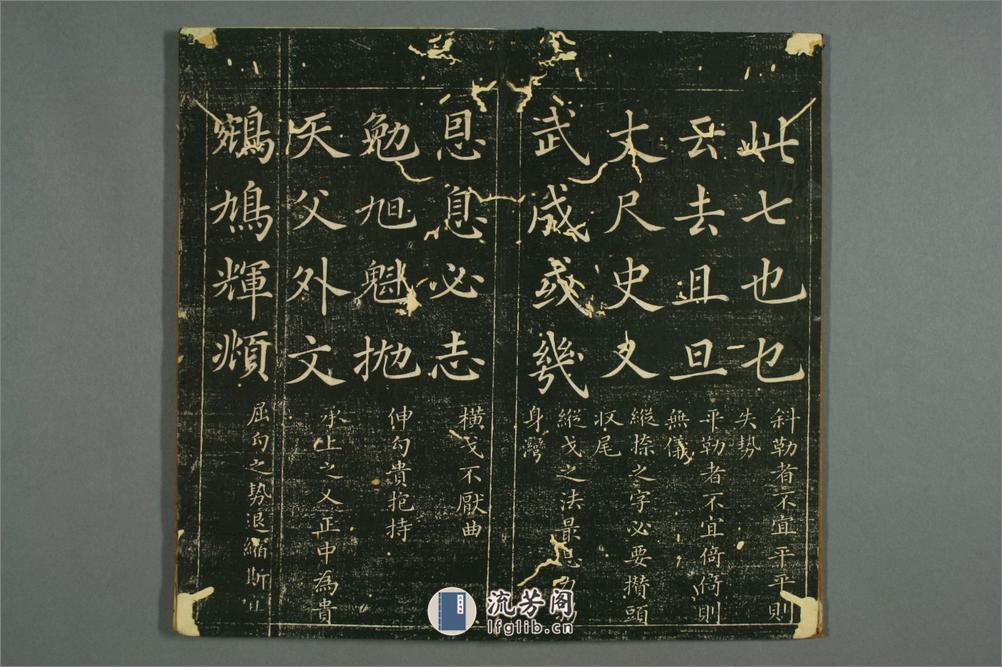 此七也乜
斜勒者不宜平平則
失勢
云去且旦
平勒者不宜倚倚則
無儀
丈尺史又
縱捺之字必要攢頭
収尾
武成或幾
縱戈之法最忌力
身彎
息必志
橫戈不厭曲
勉旭魁抛
伸勾貴抱持
天父外文
承上之乂正中為貴
鵷鳩輝頫
屈勾之勢退縮斯宜
流芳阁
lfglib.cn